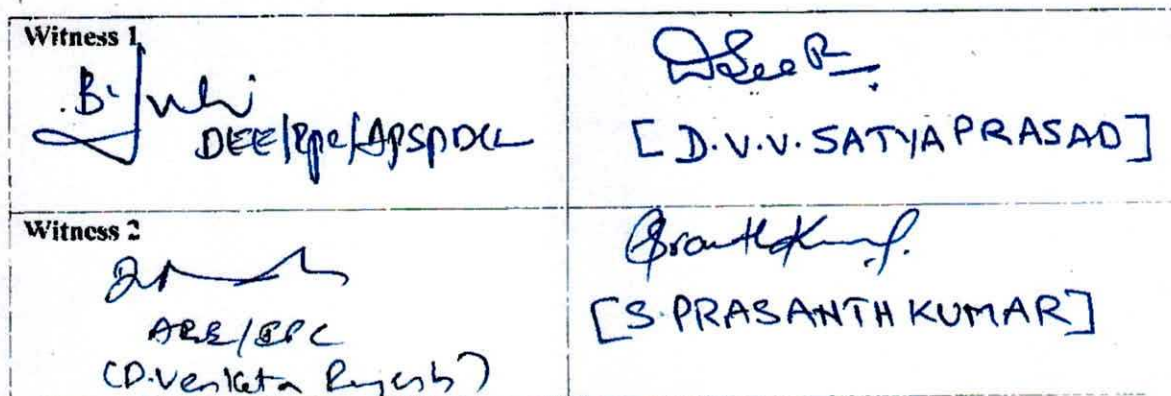 Witness 1
B.
DEE/PPC/APSPDCL
[D.V.V. SATYA PRASAD]
Witness 2
AEE/PPC
(D. Venkata Rajesh)
[S. PRASANTH KUMAR]